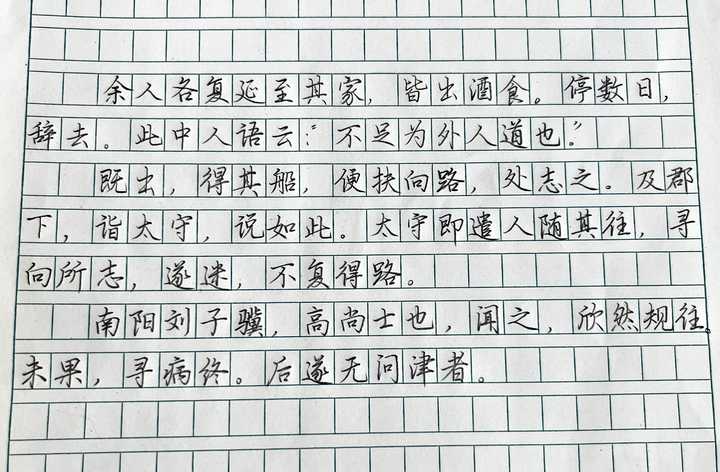 余人各复延至其家，皆出酒食。停数日，
辞去。此中人语云：“不足为外人道也。”
既出，得其船，便扶向路，处志之。及郡
下，诣太守，说如此。太守即遣人随其往，寻
向所志，遂迷，不复得路。
南阳刘子骥，高尚士也，闻之，欣然规往。
未果，寻病终。后遂无问津者。